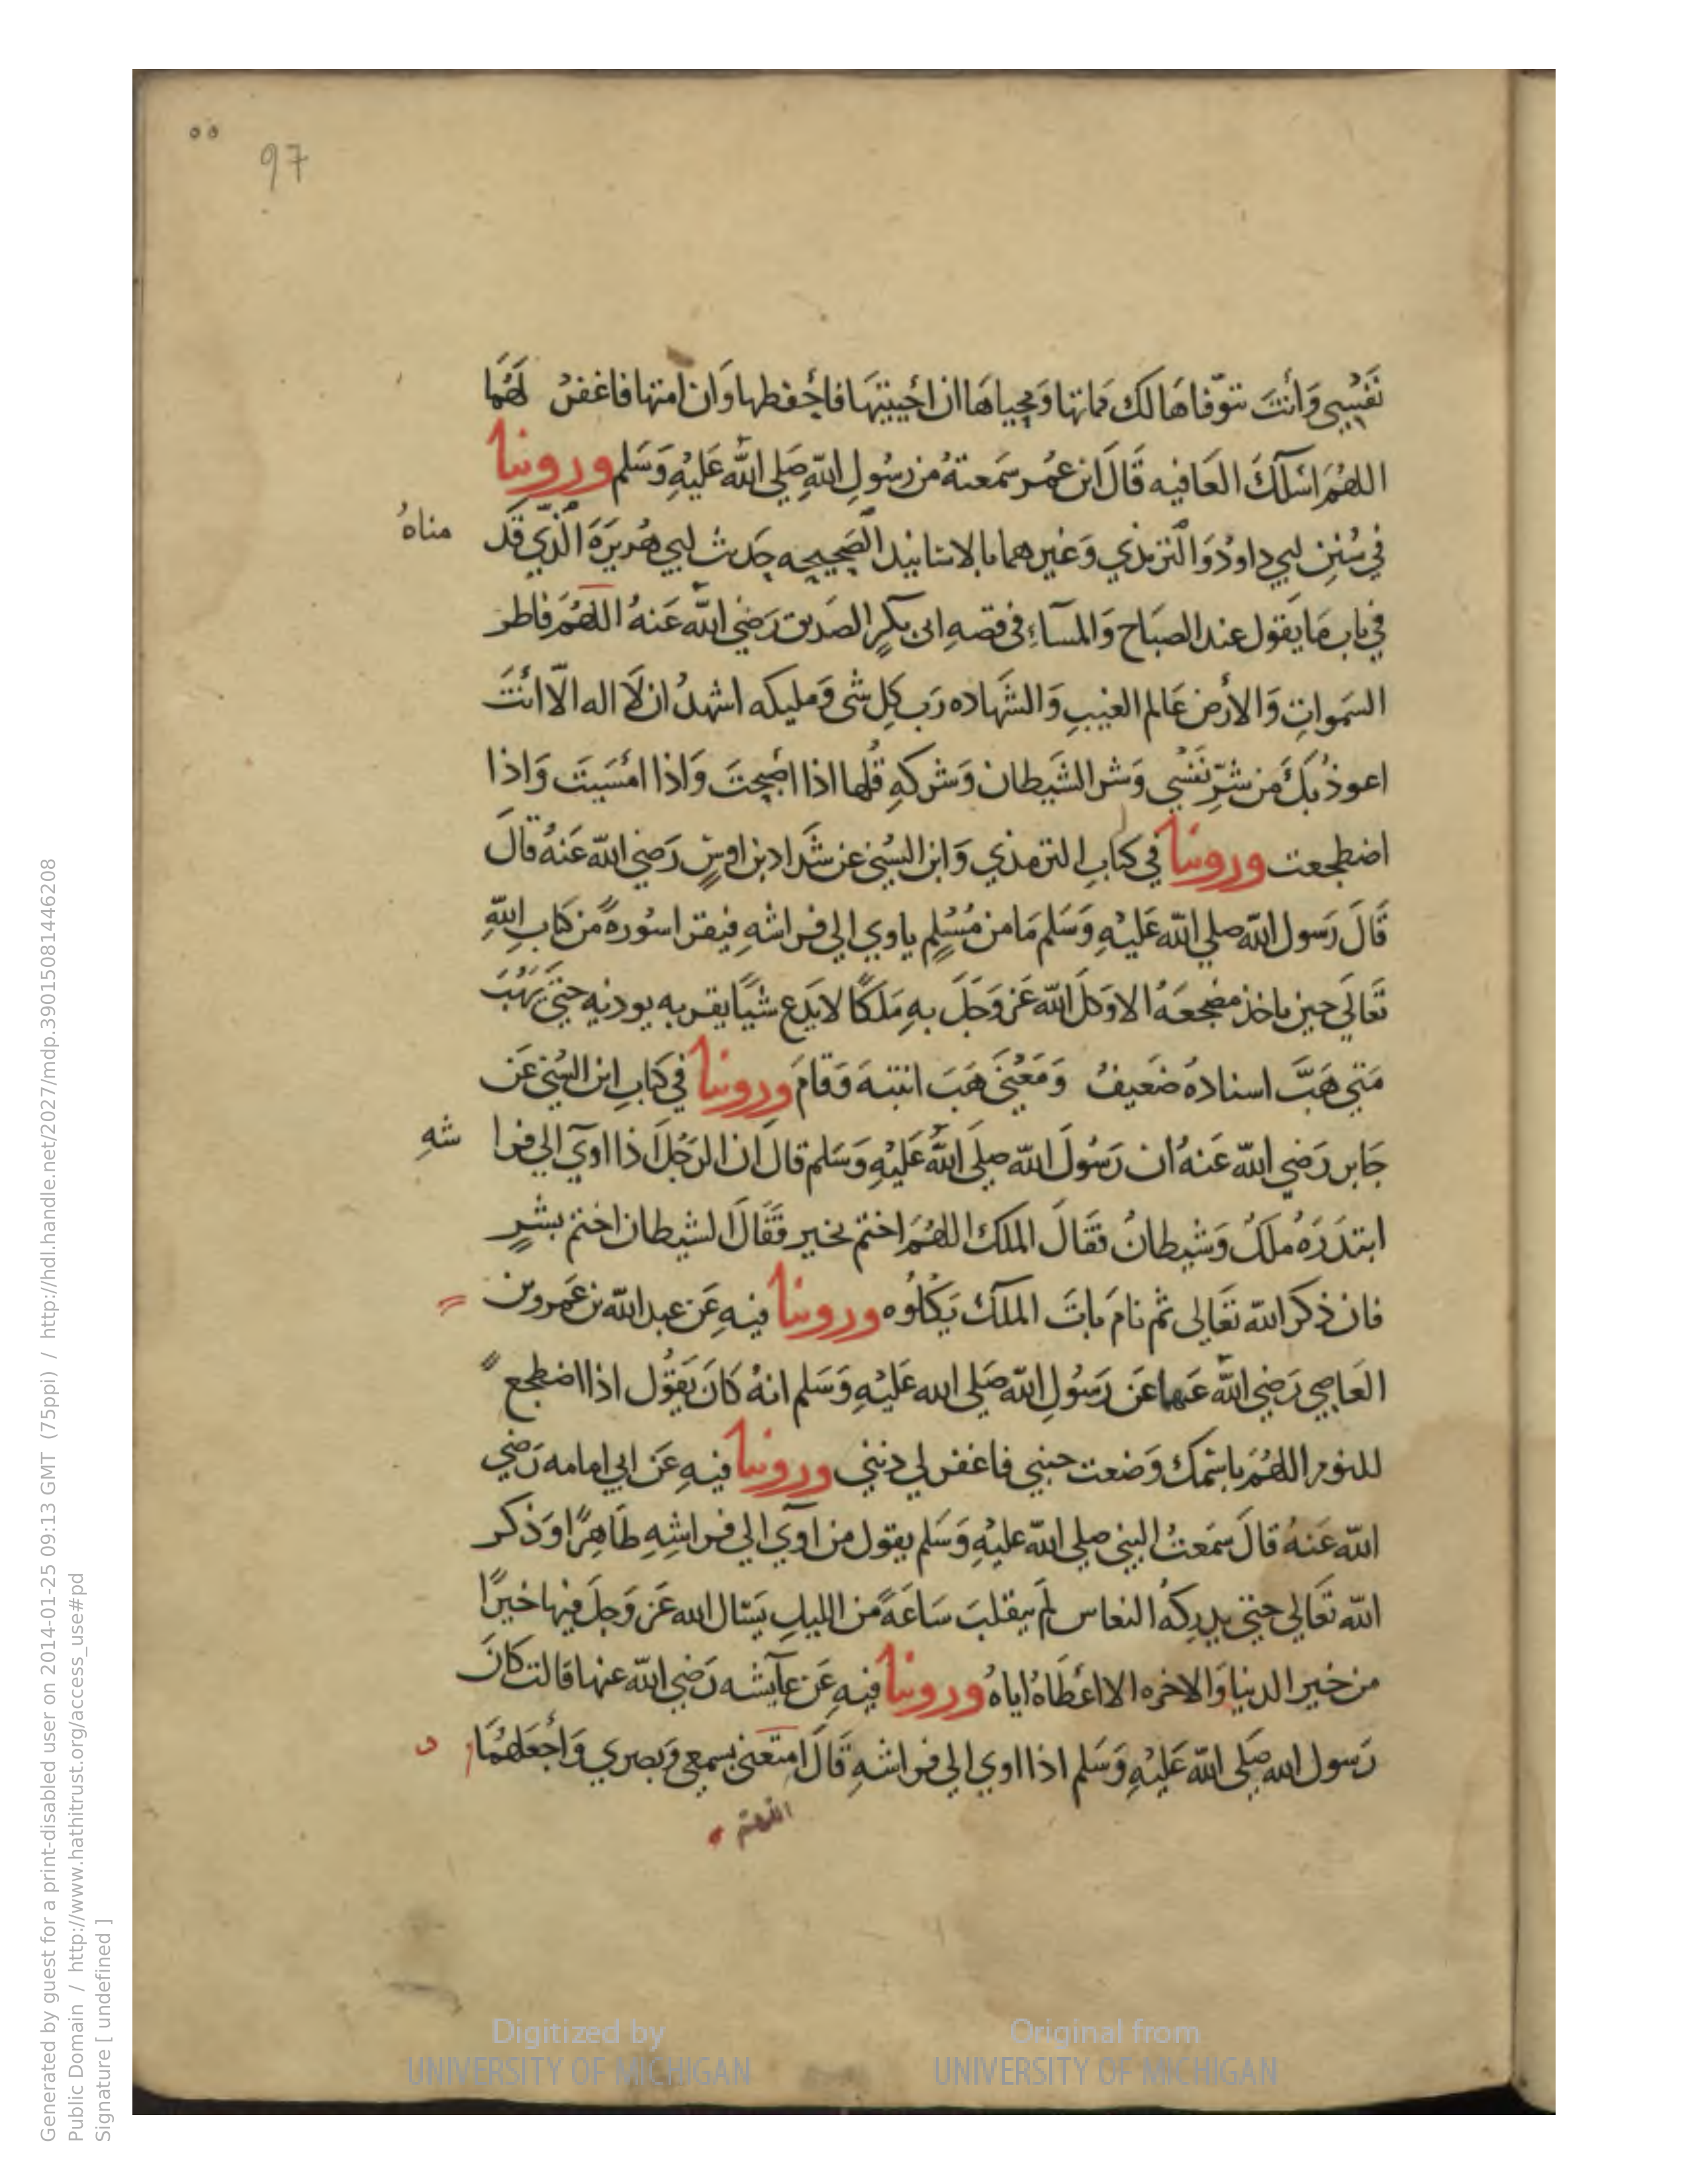 ٥٥
97
نَفْسِي وَأَنتَ تتوّفاهَا لك مَماتها وَمحياهَا ان احْييتهَا فاحْفظها وَان امتها فاغفرْ لَهَا
اللهُمَ اسْلكَ العَافيه قَالَ ابن عُمر سَمعتهُ من رَسُولِ اللّهِ صَلي اللّه عَليْهِ وَسَلم وروينا
في سُنَنِ ابي داودُ وَالترمذي وَغيرهما بالاسانيد الصَحيحِه حَديث ابي هُريرَةَ الّذي قَد
مناهُ
في باب مَا يَقول عند الصبَاح وَالمسآءِ في قصهِ ابى بَكرٍ الصَديق رَضي اللّه عَنهُ اللهُمَ فاطر
السَموات وَالأرض عَالم الغيبِ وَالشَهاده رَب كلِ شى وَمليكه اشهدُ ان لَا اله الّا انْتَ
اعوذ بكَ مَن شرِّ نَفْسي وَشر الشَيطان وَشركهِ قُلها اذا اصْبحتَ وَاذا امْسَيتَ وَاذا
اضطجعت وروينا في كتابِ الترمذي وَابن السُني عن شَداد بن اوسٍ رَضي اللّه عَنهُ قالَ
قَالَ رَسول اللّه صلي اللّه عَليْهِ وَسَلم مَا من مُسْلمٍ ياوي الي فراشهِ فيقرا سُورةً من كتابِ اللّهِ
تَعَالَي حين ياخذ مضجعَهُ الا وَكلَ اللّه عَز وَجَلَ بهِ مَلَكًا لا يَدع شيًا يقربه يوذيه حتىَ يَهُبَ
مَتي هَبَّ اسنادهُ ضَعيفُ وَمَعْنَي هَبَ انتبهَ وَقَامَ وروينا في كَتابِ ابن السُني عَن
جَابر رَضي اللّه عَنهُ ان رَسُولَ اللّه صلَى اللّه عَليْهِ وَسَلم قالَ ان الرَجُلَ اذا اوي الي فرا
شهِ
ابتدَرَهُ مَلكُ وَشيطانُ فَقَالَ الملك اللهُمَ اختم بخير فَقَالَ الشيطان اختم بشرٍ
فان ذكر اللّه تَعَالى ثم نامَ باتَ الملك يَكْلُوه وروينا فيهِ عَن عبد اللّه بن عَمرو بن
العَاصي رَضي اللّه عَنهما عَن رَسُولِ اللّه صَلي الله عَليْهِ وَسَلم انهُ كَانَ يَقُول اذا اضطجع
للنوم اللهُمَ باسْمكَ وَضعت جنبي فاغفر لي ذنبي وروينا فيهِ عَن ابي امامه رَضي
اللّه عَنهُ قالَ سَمعتُ النبي صلي اللّه عَليْهِ وَسَلم يقول من اوي الي فراشِهِ طَاهِرًا وَذكر
اللّه تَعَالي حَتي يدركهُ النعاس لَم يتقلبَ سَاعَةً من الليلِ يَسال الله عَز وَجلَ فيها خيرًا
من خير الدنيا وَالاخره الا اعْطَاهُ اياهُ وروينا فيهِ عَن عآيشه رَضي اللّه عنها قالت كانَ
رَسول الله صَلى اللّه عَليْهِ وَسَلم اذا اوي الي فراشهِ قَالَ امتعني بسمعي وَبصري وَاجْعَلهُمَا
اللهم
Digitized by
UNIVERSITY OF MICHIGAN
Original from
UNIVERSITY OF MICHIGAN
Generated by guest for a print-disabled user on 2014-01-25 09:13 GMT (75ppi) / http://hdl.handle.net/2027/mdp.39015081446208
Public Domain / http://www.hathitrust.org/access_use#pd
Signature [ undefined ]